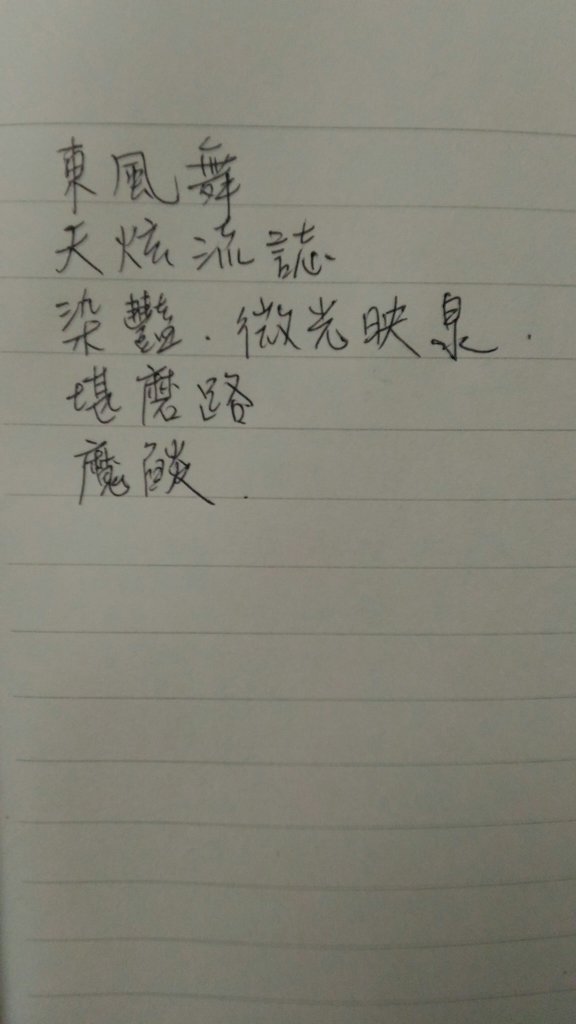 東風舞
天炫流誌
染豔.微光映泉.
堪磨路
魔餤.